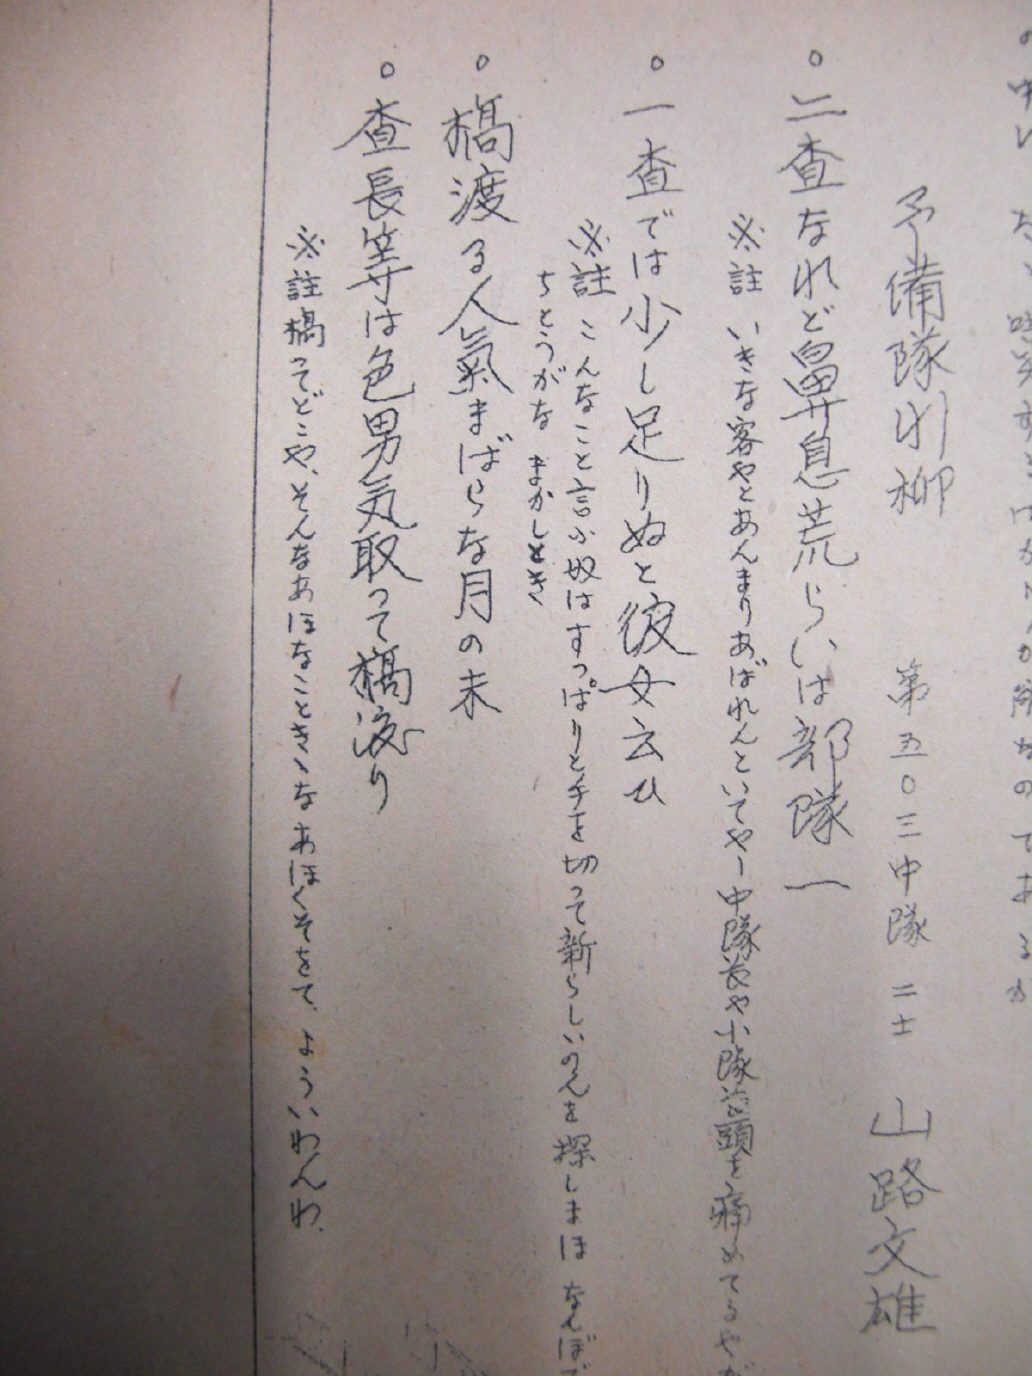 予備隊川柳 第五〇三中隊 二士 山路文雄
。二査なれど鼻息荒らいは部隊一
※註 いきな客やとあんまりあばれんといてやー中隊長や小隊 頭を痛めてるやが
。一査では少し足りぬと彼女云ひ
※註 こんなこと言ふ奴はすっぱりと手を切って新らしいのんを探しまほ なんぼで
ちとうがな まかしとき
。橋渡る人氣まばらな月の末
。査長等は色男気取って橋渡り
※註橋ってどこや、そんなあほなこときゝな あほくそをて、よういわんわ、